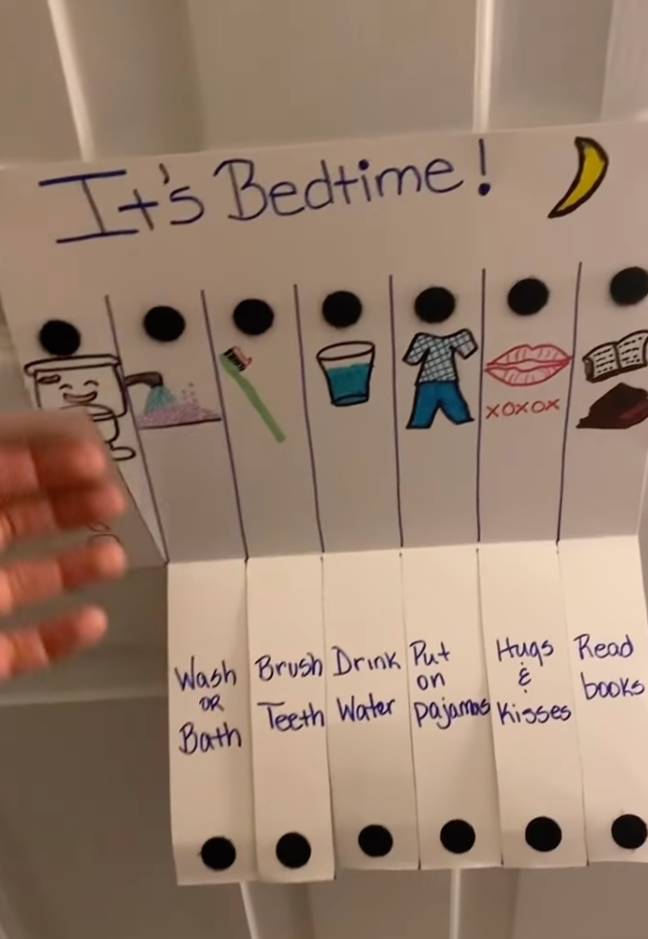 It's Bedtime!
xoxox
Wash
OR
Bath
Brush
Teeth
Drink
Water
Put
on
pajamas
Hugs
&
Kisses
Read
books